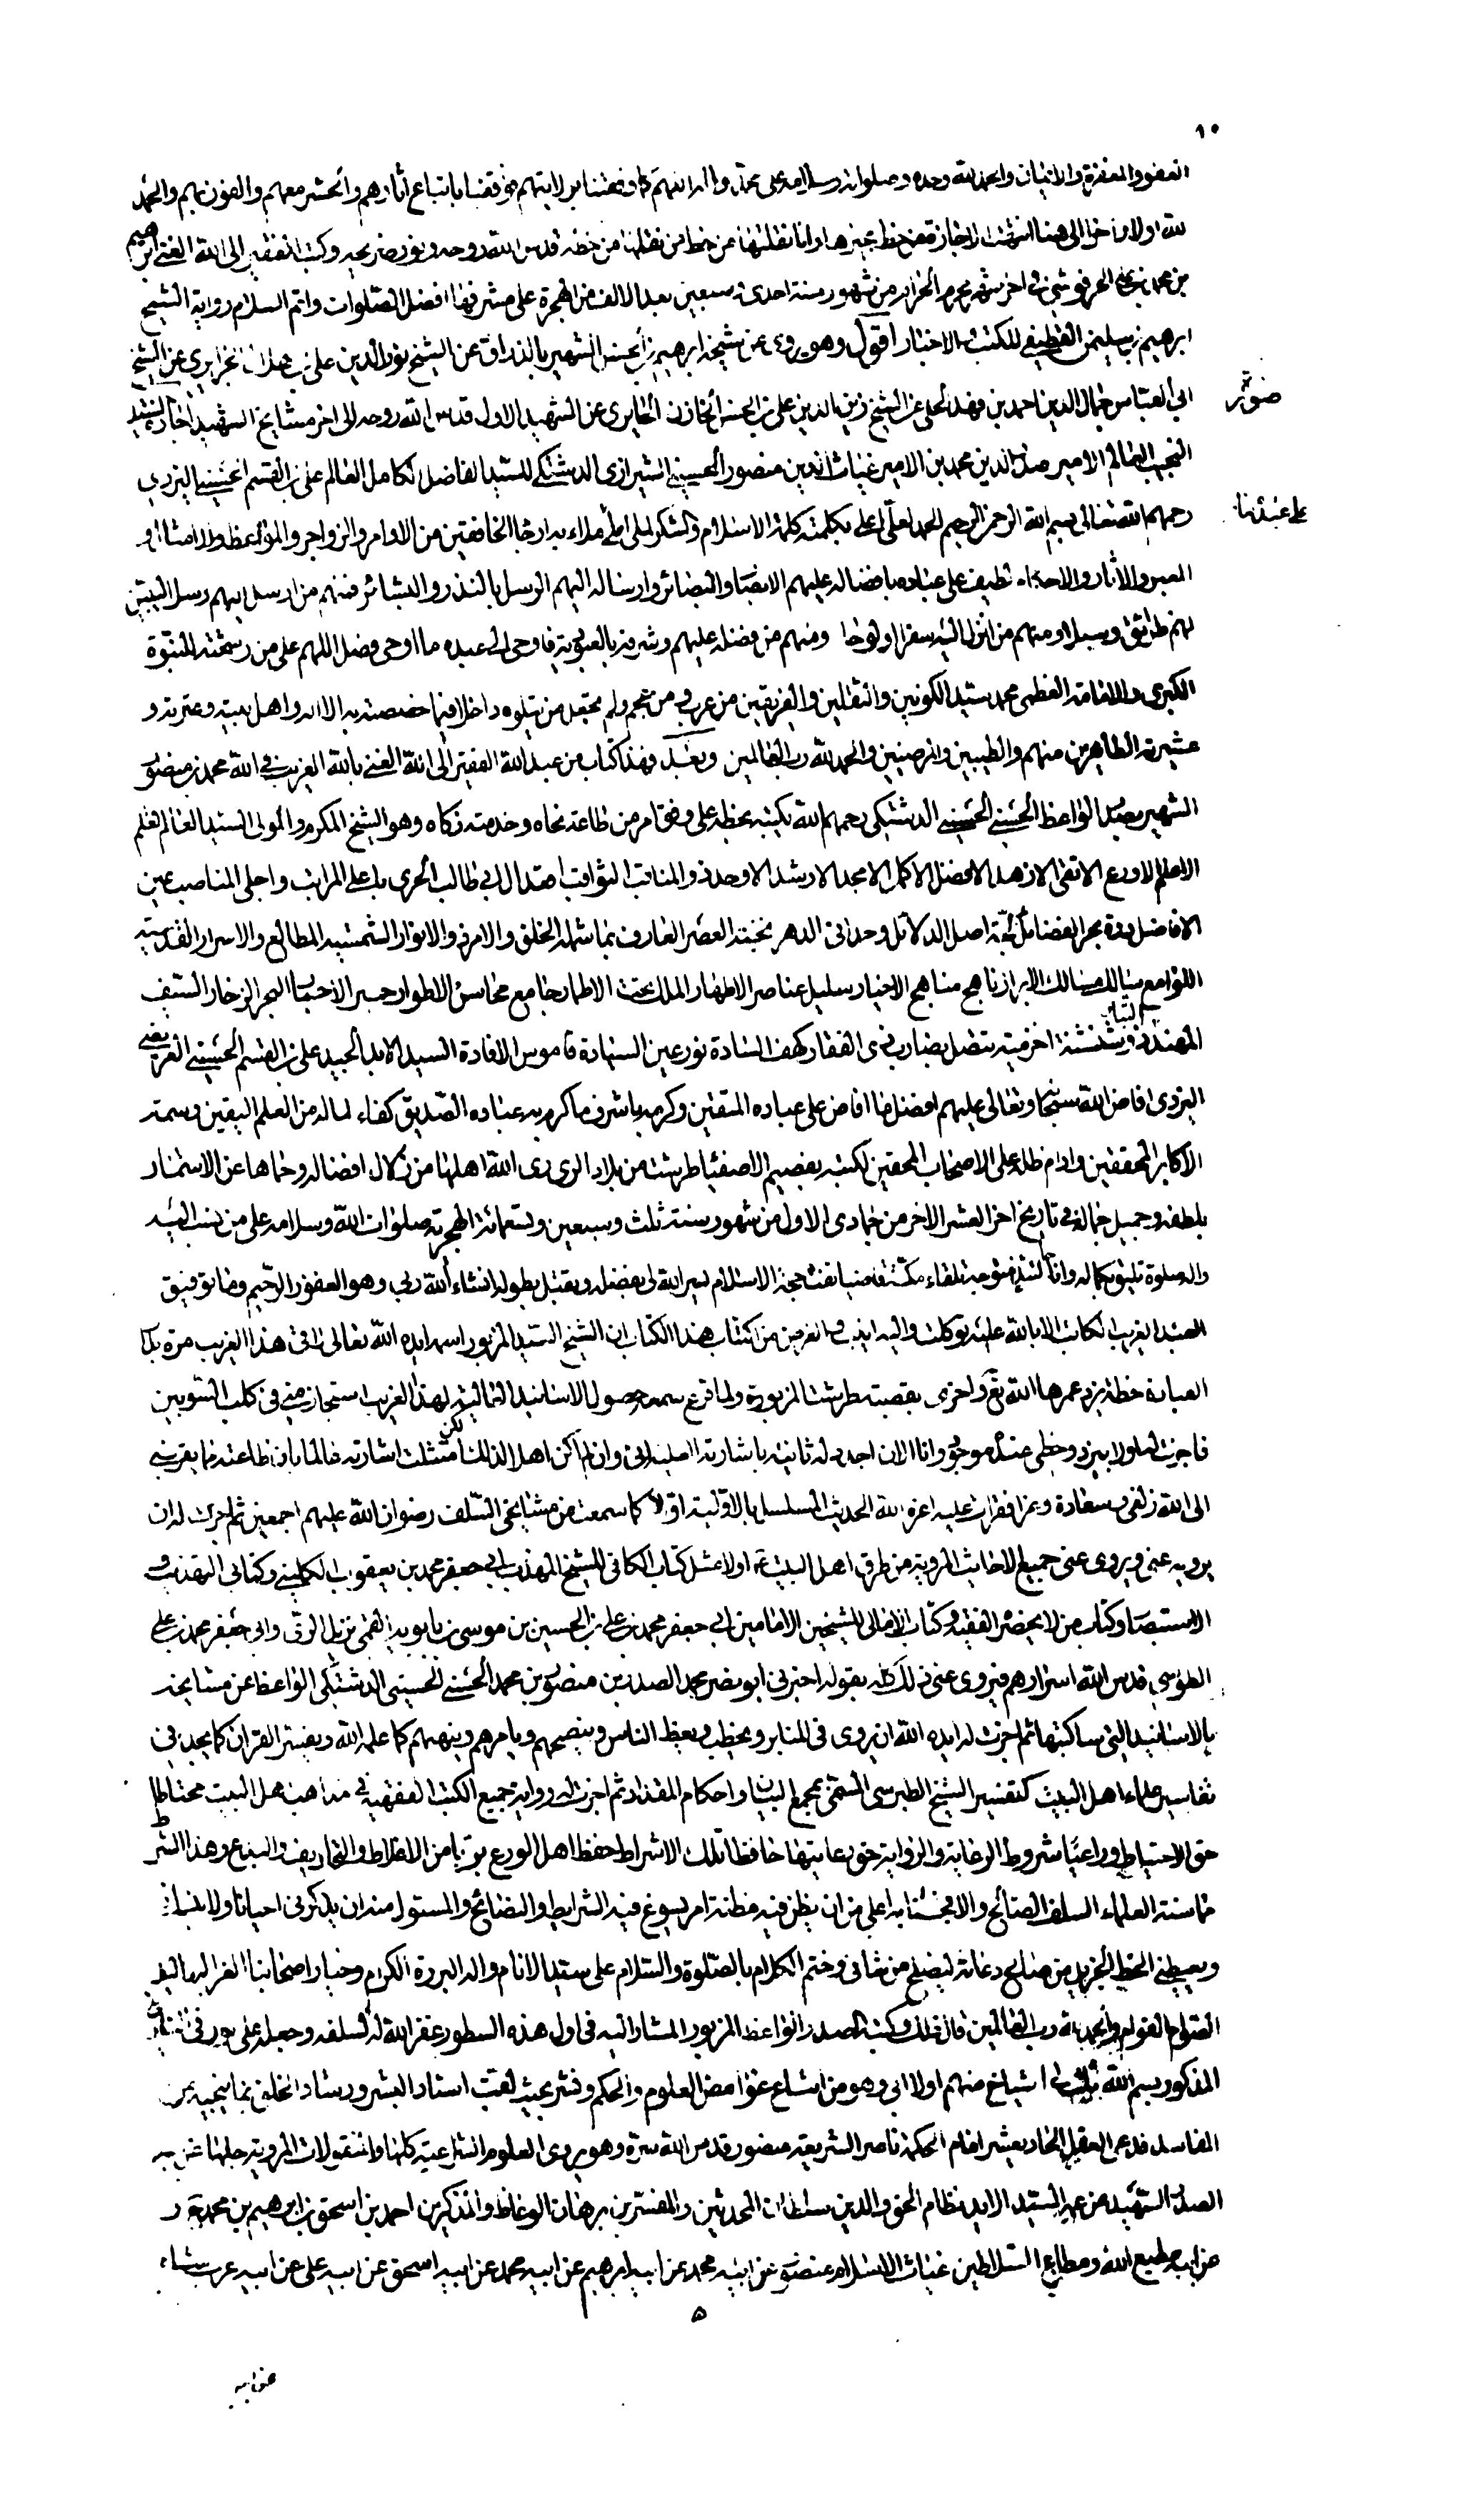 ١٠
العفو والمغفرة والامتنان والحمد لله وحده وصلواته وسلامه على محمد واله اللهم كما وفقتنا بولايتهم فوفقنا باتباع اثارهم والحشر معهم والفوز بهم والحمد
لله اولا واخرا الى هنا انتهت الاجازة من خط مجيزها وانا نقلتها من خط من نقلها من خطه قدس الله روحه ونور ضريحه وكتب الفقير الى الله الغني ابراهيم
بن محمد بن علي الحرفوشي في اخر شهر محرم الحرام من شهور سنة احدى وسبعين بعد الالف من الهجرة على مشرفها افضل الصلوات واتم السلام رواية الشيخ
ابرهيم بن سليمن القطيفي للكتب والاخبار اقول وهو يروى عن شيخه ابرهيم بن الحسن الشهير بالذراق عن الشيخ نور الدين على بن هلال الجزايري عن الشيخ
ابي العباس جمال الدين احمد بن فهد الحلي عن الشيخ زين الدين على بن الحسن الخازن الحايرى عن الشهيد الاول قدس الله روحه الى اخر مشايخ الشهيد اجازة السيد
صورة
النجيب العالم الامير صدر الدين محمد بن الامير غياث الدين منصور الحسيني الشيرازى الدشتكى للسيد الفاضل الكامل العالم على بن القسم الحسيني اليزدي
رحمهم الله تعالى بسم الله الرحمن الرحيم الحمد لعلى اعلى بكلمته كلمة الاسلام والشكر لملى املأ ملاءه ارجاء الخافقين من الاوامر والزواجر والمواعظ والامثال و
على عبدنا
العبر والاثار والاحداء لطيف على عباده بافضاله عليهم الابصار والبصائر وارساله اليهم الرسل بالنذر والبشائر فمنهم من ارسل اليهم رسل النبيين
لهم طرائق وسبلا ومنهم من انزل اليه سفرا او لوحا ومنهم من فضله عليهم وشرفه بالعبودية فاوحى الى عبده ما اوحى وفضل اللهم على من رسمته للنبوة
الكبرى والامامة العظمى محمد سيد الكونين والثقلين والفريقين من عرب ومن عجم ولم تجعل من يتلوه داخلا فيما خصصته به الا اله واهل بيته وعترته و
عشيرته الطاهرين منهم والطيبين والرضيين والحمد لله رب العالمين وبعد فهذا كتاب من عبد الله الفقير الى الله الغني بالله الغريب في الله محمد بن منصور
الشهير بصدر الواعظ الحسني الحسيني الدشتكى رحمهم الله يكتبه بخطه على وفق امر من طاعته نجاه وخدمته زكاه وهو الشيخ المكرم والمولى السيد العالم العلم
الاعلم الاورع الاتقى الازهد الافضل الاكمل الامجد الارشد الاوحد ذو المناقب الثواقب اعقد ال ابي طالب الحرى باعلى المراتب واجلى المناصب عين
الافاضل درة بحر الفضائل ثقة اصل الدلائل وحدانى الدهر نخبة العصر العارف بما شمله الخلق والامر ذو الانوار الشمسية المطالع والاسرار القدسية
اللوامع سالك مسالك الابرار ناهج مناهج الاخيار سليل عناصر الاطهار الملك تحت الاطمار جامع محاسن الاطوار حبر الاحبار البحر الزخار السيف
المهند البتار ذو شنشنة اخزمية تتصل بضارب ذى الفقار كهف السادة نور عين السيادة قاموس الافادة السيد الايد المجيد على بن القسم الحسيني العريضي
اليزدى افاض الله سبحانه وتعالى عليهم افضل ما افاض على عباده المتقين وكرمه باشرف ما كرم به عباده الصديق كفاء لماله من العلم اليقين وسمته
الاكابر المحققين وادام ظله على الاصحاب المحقين لكتبه بقصبة الاصفياء طرشت من بلاد الرى روى الله اهلها من زلال افضاله وحماها عن الاستمثار
بلطفه وجميل جماله فى تاريخ اخر العشر الاخر من جمادى الاول من شهور سنة ثلث وسبعين وتسعمائة الهجرية صلوات الله وسلامه على من نسب اليه
واله صلوة تليق بكماله وانا لمتوجه تلقاء مكة قاضيا تفث حجة الاسلام ليسر الله لى بفضله ويقبل بطوله انشاء الله ربي وهو الغفور الرحيم وما توفيق
العبد الغريب الكاتب الا بالله عليه توكلت واليه انيب والغرض من اكتتاب هذا الكتاب ان الشيخ السيد المزبور اسمه ايده الله تعالى لاقى هذا الغريب مرة بدار
العبادة خطة يزد عمرها الله تع واخرى بقصبة طرشت المزبورة ولما قرع سمعه حصول الاسانيد العالية لهذا الغريب استجاز منى فى كلتا النوبتين
فاجزت له اولا بيزد وخطى عنده موجود وانا الان اجدد له ثانية باشارته العلية اليّ وان لم اكن اهلا لذلك لكن امتثلت اشارته فالما بان طاعته مما يقربني
الى الله زلفى وسعادة وعزا فقرات عليه اعزه الله الحديث المسلسل بالاولية اولا كما سمعت من مشايخي السلف رضوان الله عليهم اجمعين ثم اجزت له ان
يرويه عنى ويروى عنى جميع الاحاديث المروية من طرق اهل البيت ع اولا مثل كتاب الكافى للشيخ المهذب ابي جعفر محمد بن يعقوب الكليني وكتابى التهذيب و
الاستبصار وكتاب من لا يحضره الفقيه وكتاب الامالى للشيخين الامامين ابي جعفر محمد بن على بن الحسين بن موسى بن بابويه القمى نزيل الرى وابى جعفر محمد بن على
الطوسى قدس الله اسرارهم فيروى عنى ذلك كله بقوله اخبرنى ابو نصر محمد الصدر بن منصور بن محمد الحسني الحسينى الدشتكى الواعظ عن مشايخه
بالاسانيد التى ساكتبها ثم اجزت له ايده الله ان يروى فى المنابر ويخطب ويعظ الناس وينصحهم ويامرهم وينهيهم كما علمه الله ويفسر القران كما يجد في
تفاسير علماء اهل البيت كتفسير الشيخ الطبرسى المسمى بمجمع البيان واحكام المقداد ثم اجزت له رواية جميع الكتب الفقهية في مذاهب اهل البيت محتاطا
حق الاحتياط وراعيا شروط الرعاية والرواية حق رعايتها حافظا تلك الاشراط حفظ اهل الورع بريا من الاغلاط والتحاريف والبدع وهذا الشرط
مما سنه العلماء السلف الصالح والا فجنابه اعلى من ان يظن فيه مظنة امر يسوغ فيه الشرايط والنصائح والمسئول منه ان يذكرنى احيانا ولا ينسانى
ويعطيني الحظ الجزيل من صالح دعائه ليصلح من شانى وختم الكلام بالصلوة والسلام على سيد الانام واله البررة الكرام وخيار اصحابنا الغر البهاليل
الصوام القوام والحمد لله رب العالمين قال ذلك وكتبه الصدر الواعظ المزبور المشار اليه فى اول هذه السطور غفر الله له لسلفه وجعله على نور فى التاريخ
المذكور بسم الله اشياخ منهم اولا ابى وهو من اشاع غوامض العلوم والحكم ونشر بحيث لقب استاد البشر ورشاد الخلق بما ينجيه من
المفاسد فدعى العقل الحادى عشر امام الحكمة ناصر الشريعة منصور قدس الله سره وهو يروى العلوم الشرعية كلها والمنقولات المروية جلها عن ابيه
الصدر الشهيد عن عمه السيد الايد نظام الحق والدين سلطان المحدثين والمفسرين برهان الوعاظ والمذكرين احمد بن اسحق بن ابرهيم بن محمد
عن ابيه مطيع الله ومطاع السلاطين غياث الاسلام منصور عن ابيه محمد عن ابيه ابرهيم عن ابيه محمد عن ابيه اسحق عن ابيه على عن ابيه عربشاه
٥
عن ابيه